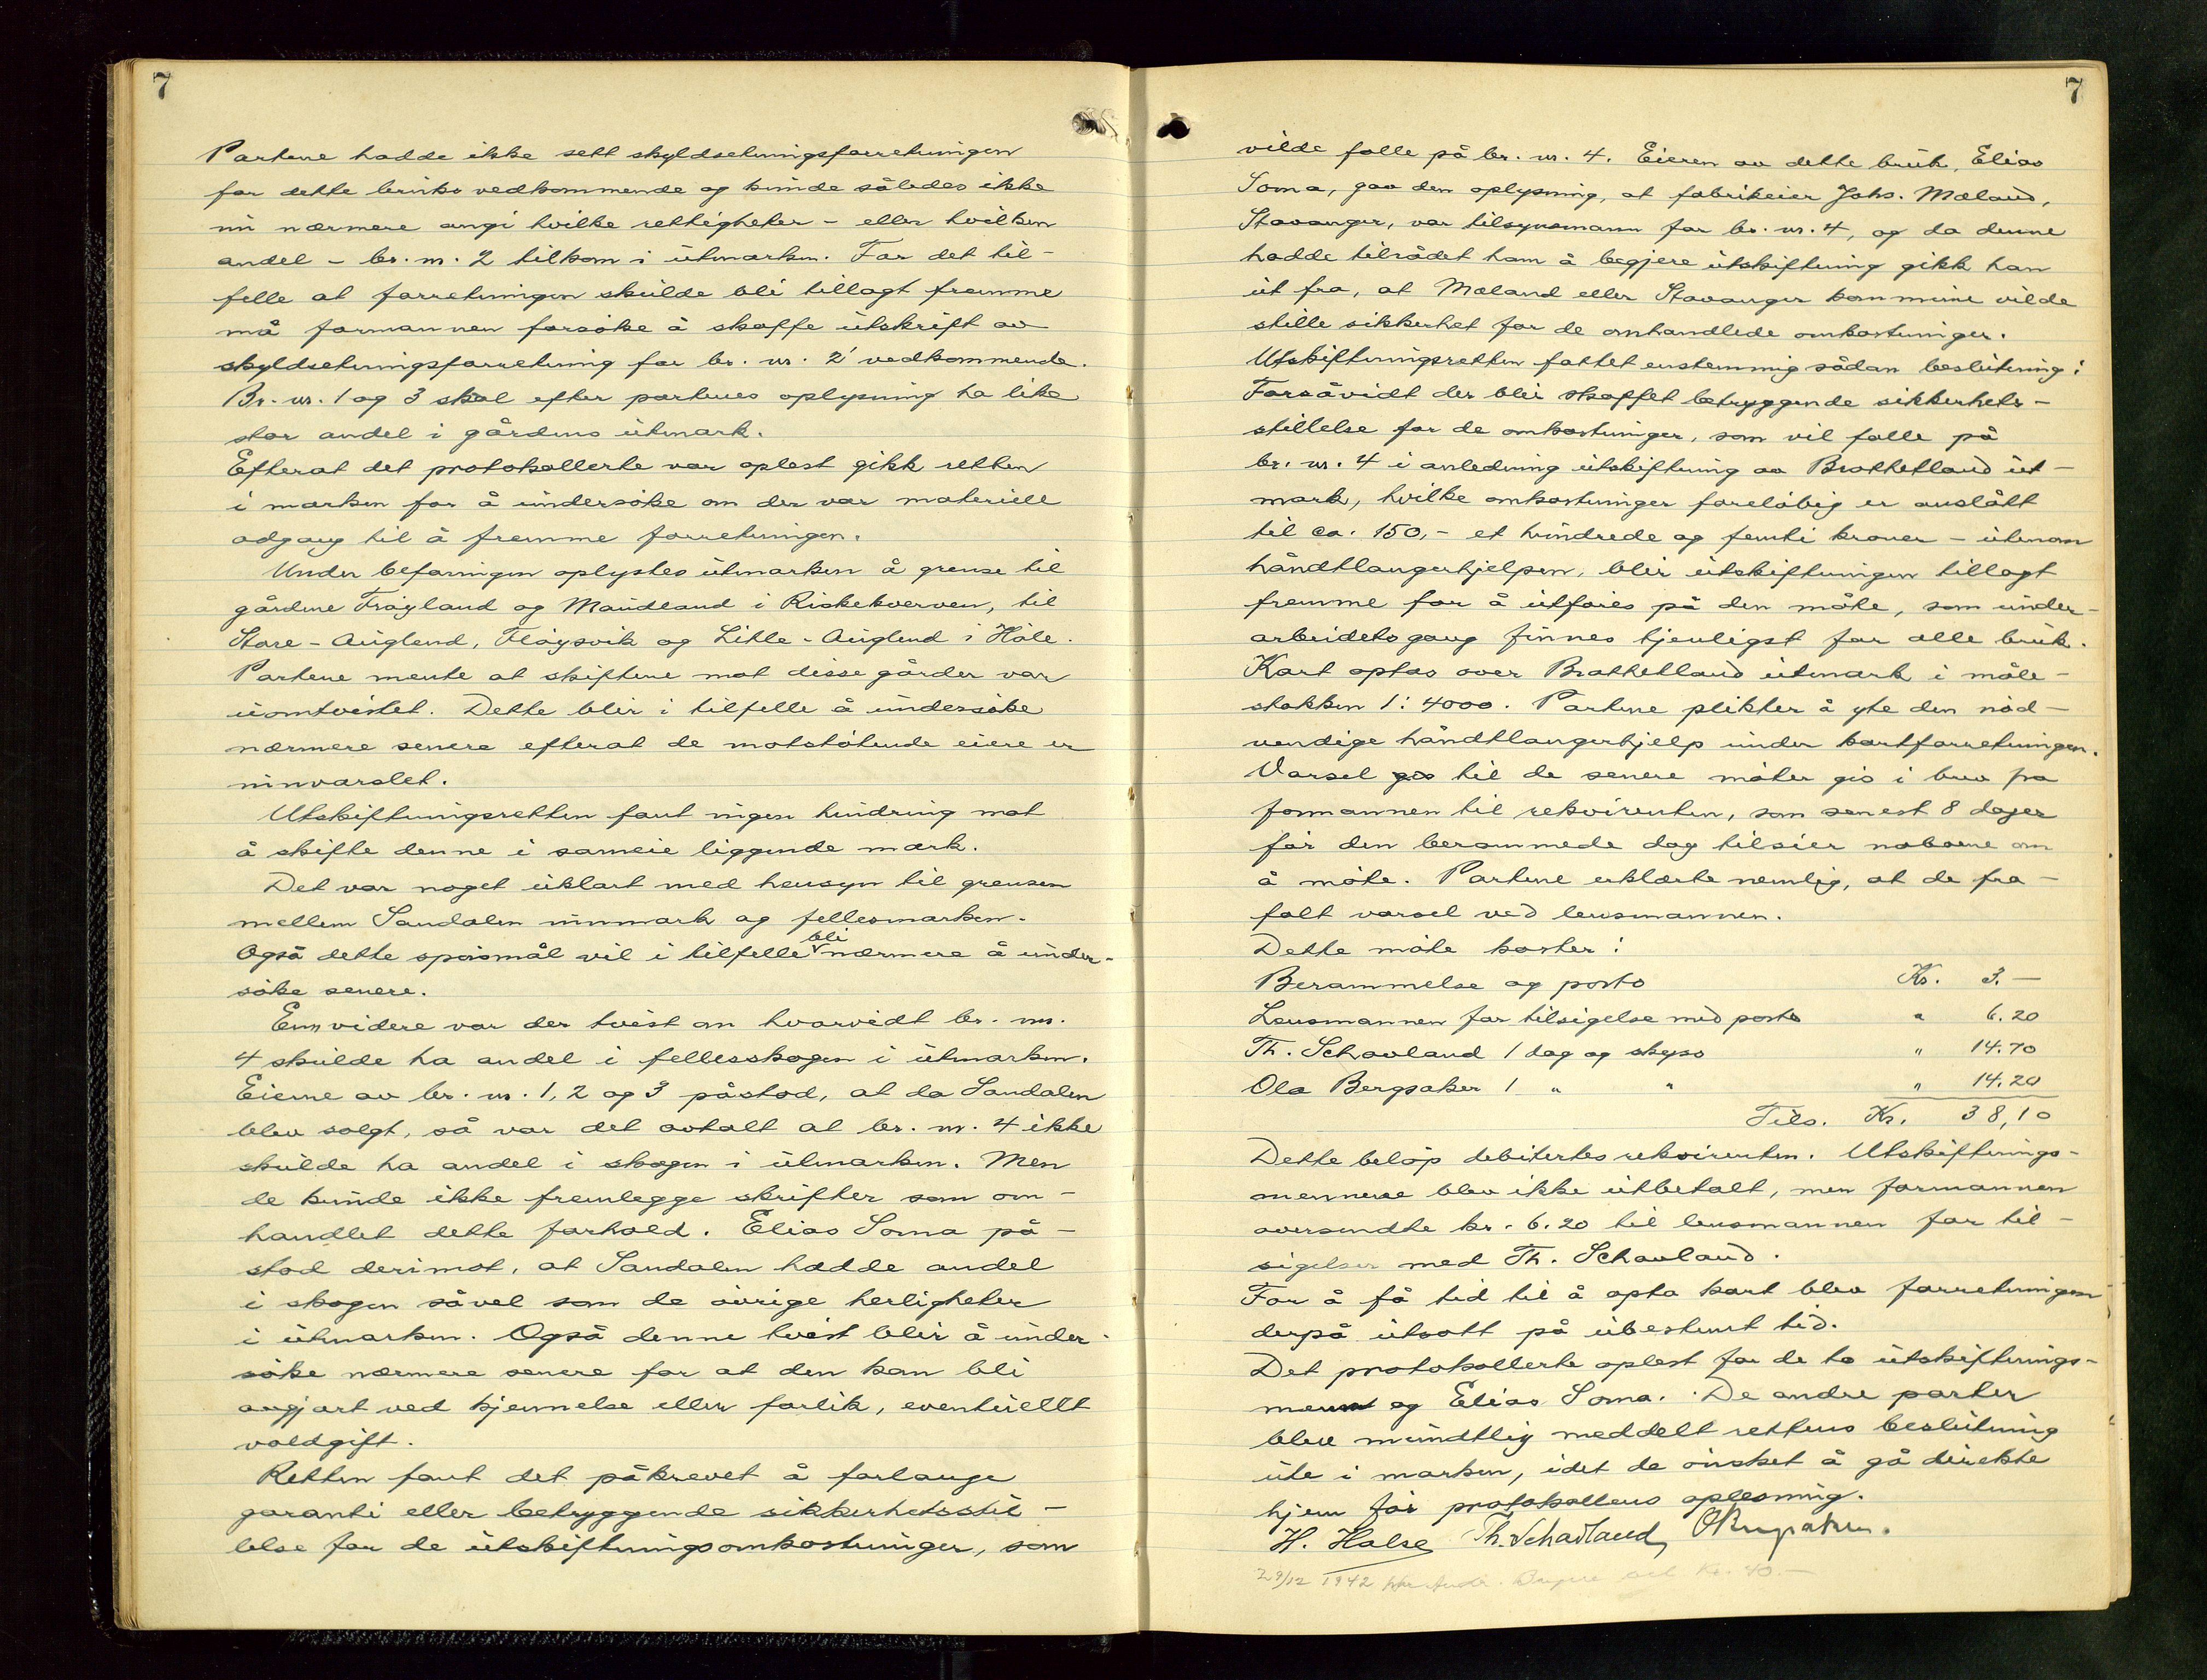 7
Partene hadde ikke sett skyldsetningsforretningen
for dette bruks vedkommende og kunde således ikke
nu nærmere angi hvilke rettigheter – eller hvilken
andel – br. nr. 2 tilkom i utmarken. For det til-
felle at forretningen skulde bli tillagt fremme
må formannen forsøke å skaffe utskrift av
skyldsetningsforretning for br. nr. 2' vedkommende.
Br. nr. 1 og 3 skal efter partenes oplysning ha like
stor andel i gårdens utmark.
Efterat det protokollerte var oplest gikk retten
i marken for å undersøke om der var materiell
adgang til å fremme forretningen.
Under befaringen oplystes utmarken å grense til
gårdene Frøyland og Maudland i Riskekverven, til
Store-Auglend, Fløysvik og Litle-Auglend i Høle.
Partene mente at skiftene mot disse gårder var
uomtvistet. Dette blir i tilfelle å undersøke
nærmere senere efterat de motstøtende eiere er
innvarslet.
Utskiftningsretten fant ingen hindring mot
å skifte denne i sameie liggende mark.
Det var noget uklart med hensyn til grensen
mellem Sandalen innmark og fellesmarken.
Også dette spørsmål vil i tilfelle bli nærmere å under-
søke senere.
Enn videre var der tvist om hvorvidt br. nr.
4 skulde ha andel i fellesskogen i utmarken.
Eierne av br. nr. 1, 2 og 3 påstod, at da Sandalen
blev solgt, så var det avtalt at br. nr. 4 ikke
skulde ha andel i skogen i utmarken. Men
de kunde ikke fremlegge skrifter som om-
handlet dette forhold. Elias Soma på-
stod derimot, at Sandalen hadde andel
i skogen såvel som de øvrige herligheter
i utmarken. Også denne tvist blir å under-
søke nærmere senere for at den kan bli
avgjort ved kjennelse eller forlik, eventuellt
voldgift.
Retten fant det påkrevet å forlange
garanti eller betryggende sikkerhetsstil-
lelse for de utskiftningsomkostninger, som
7
vilde falle på br. nr. 4. Eieren av dette bruk, Elias
Soma, gav den oplysning, at fabrikeier Johs. Mæland,
Stavanger, var tilsynsmann for br. nr. 4, og da denne
hadde tilrådet ham å begjere utskiftning gikk han
ut fra, at Mæland eller Stavanger kommune vilde
stille sikkerhet for de omhandlede omkostninger.
Utskiftningsretten fattet enstemmig sådan beslutning:
Forsåvidt der blir skaffet betryggende sikkerhets-
stillelse for de omkostninger, som vil falle på
br. nr. 4 i anledning utskiftning av Brattetland ut-
mark, hvilke omkostninger foreløbig er anslått
til ca. 150,- et hundrede og femti kroner – utenom
håndtlangerhjelpen, blir utskiftningen tillagt
fremme for å utføres på den måte, som under-
arbeidets gang finnes tjenligst for alle bruk.
Kart optas over Brattetland utmark i måle-
stokken 1:4000. Partene plikter å yte den nød-
vendige håndtlangerhjelp under kartforretningen.
Varsel gis til de senere møter gis i brev fra
formannen til rekvirenten, som senest 8 dager
før den berammede dag tilsier naboene om
å møte. Partene erklærte nemlig, at de fra-
falt varsel ved lensmannen.
Dette møte koster:
Berammelse og porto Kr. 3.—
Lensmannen for tilsigelse med porto " 6.20
Th. Schavland 1 dag og skyss " 14.70
Ola Bergsaker 1 " " " 14.20
Tils. Kr. 38,10
Dette beløp debitertes rekvirenten. Utskiftnings-
mennene blev ikke utbetalt, men formannen
oversendte kr. 6.20 til lensmannen for til-
sigelser med Th. Schavland.
For å få tid til å opta kart blev forretningen
derpå utsatt på ubestemt tid.
Det protokollerte oplest for de to utskiftnings-
menn og Elias Soma. De andre parter
blev mundtlig meddelt rettens beslutning
ute i marken, idet de ønsket å gå direkte
hjem før protokollens oplesning.
H. Halse Th. Schavland, O Bergsaker.
29/12 1942 Kr. 40.—